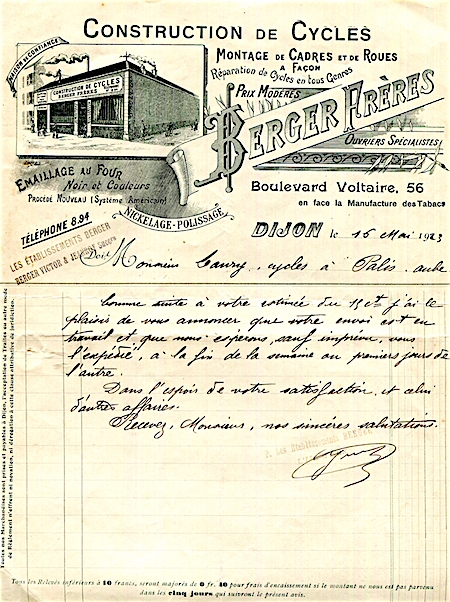 CONSTRUCTION DE CYCLES
MAISON DE CONFIANCE
MONTAGE DE CADRES ET DE ROUES
A FAÇON
Réparation de Cycles en tous Genres
PRIX MODÉRÉS
CONSTRUCTION DE CYCLES
BERGER FRÈRES
BERGER FRÈRES
OUVRIERS SPÉCIALISTES
EMAILLAGE AU FOUR
Noir et Couleurs
PROCÉDÉ NOUVEAU (Système Américain)
NICKELAGE-POLISSAGE
Boulevard Voltaire, 56
en face la Manufacture des Tabacs
TÉLÉPHONE 8.94
LES ÉTABLISSEMENTS BERGER
BERGER VICTOR & Succrs
DIJON le 15 Mai 1923
Doit Monsieur cycles à Palis, aube
Comme suite à votre du 13 ct j'ai le
plaisir de vous annoncer que votre envoi est en
travail et que nous espérons, sauf imprévu, vous
l'expédié, à la fin de la semaine ou premiers jours de
l'autre.
Dans l'espoir de votre satisfaction, et celui
d'autres affaires.
Recevez, Monsieur, nos sincères salutations.
P. Les Etablissements BERGER
Toutes nos Marchandises sont prises et payables à Dijon, l'acceptation de Traites ou autre mode
de Règlement n'offrant ni novation, ni dérogation à cette clause attributive de juridiction.
Tous les Relevés inférieurs à 10 francs, seront majorés de 0 fr. 40 pour frais d'encaissement si le montant ne nous est pas parvenu
dans les cinq jours qui suivront le présent avis.